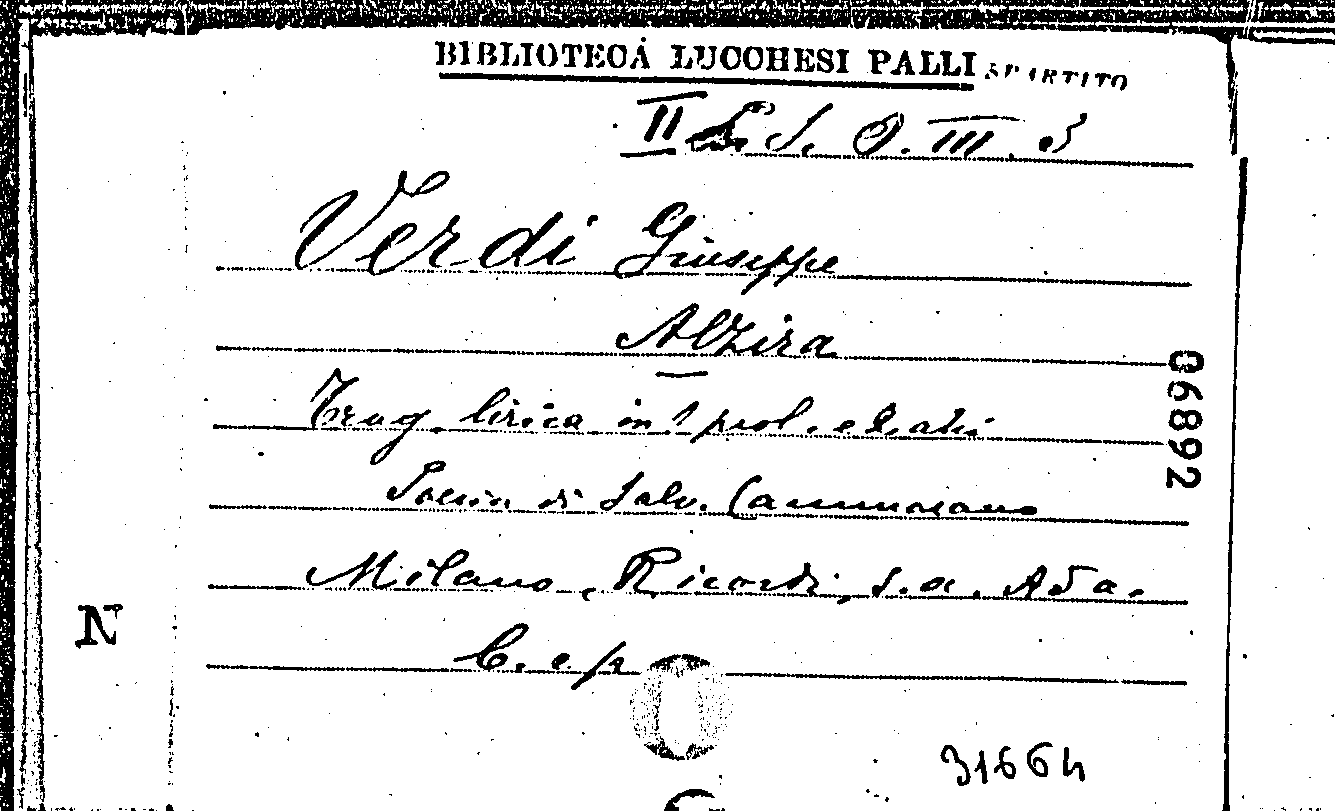 BIBLIOTECA LUCCHESI PALLI SPARTITO
II S. O. III. 3
Verdi Giuseppe
Alzira
Trag. lirica in 1 prol. e 2 atti
Poesia di Salv. Cammarano
Milano, Ricordi, s.a. A5a.
C. e p.
06892
N
31664